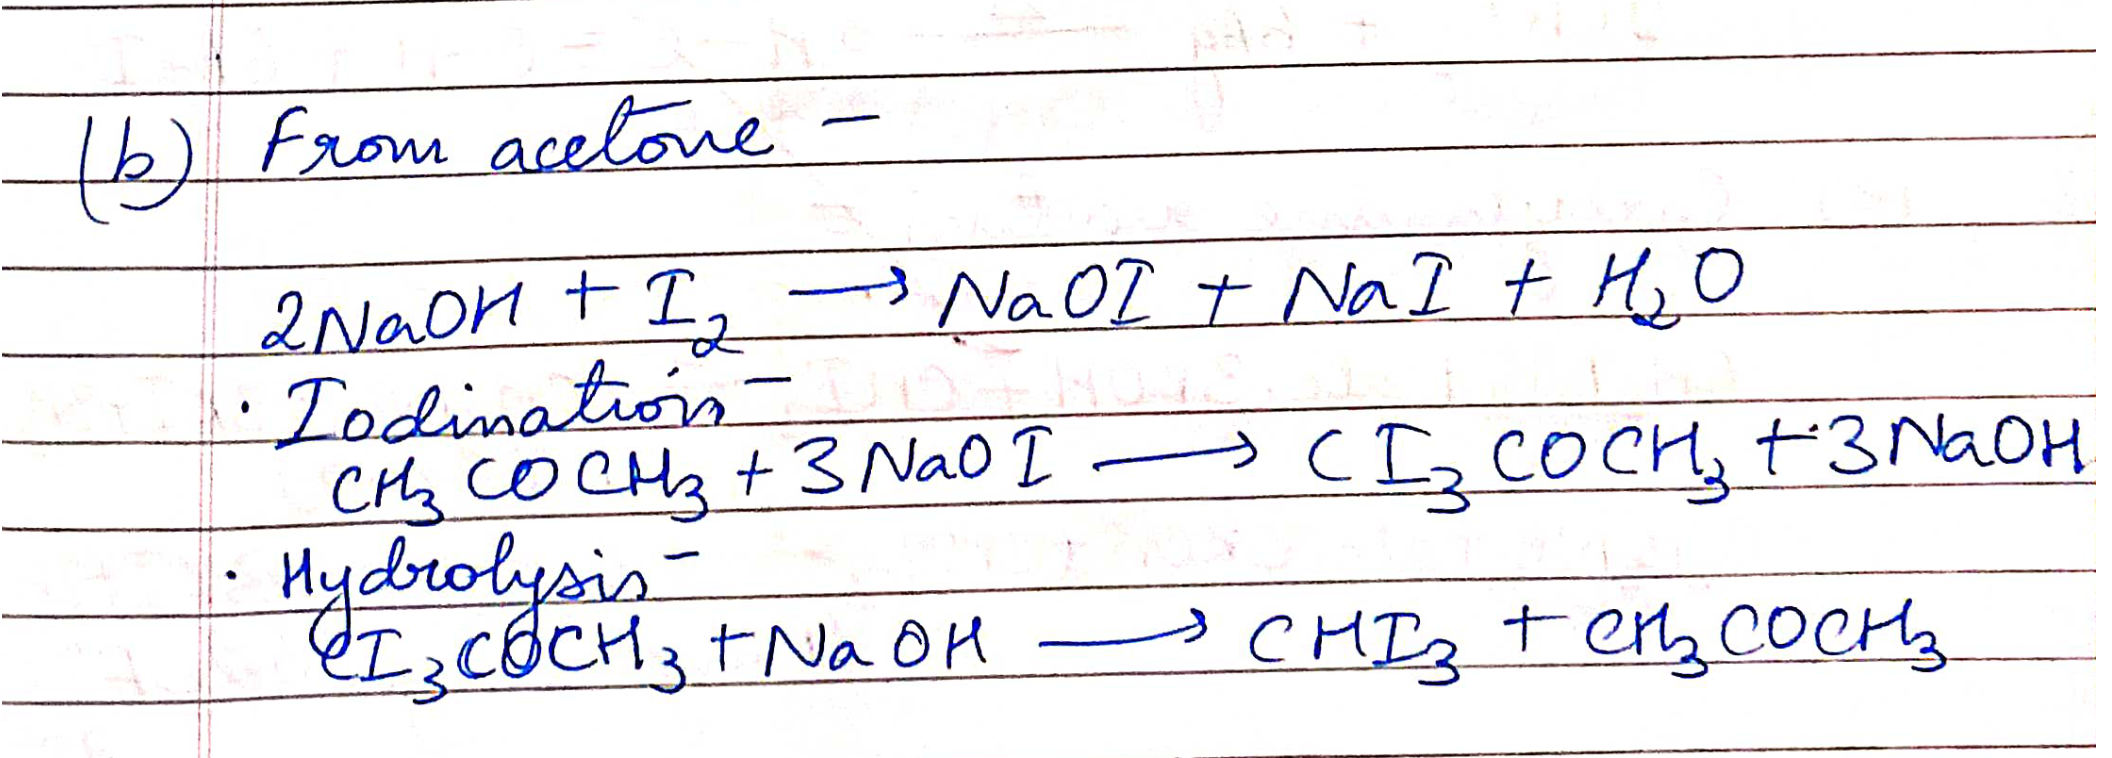 (b) From acetone -
2NaOH + I₂ → NaOI + NaI + H₂O
· Iodination -
CH₃COCH₃ + 3NaOI → CI₃COCH₃ + 3NaOH
· Hydrolysis -
CI₃COCH₃ + NaOH → CHI₃ + CH₃COCH₃